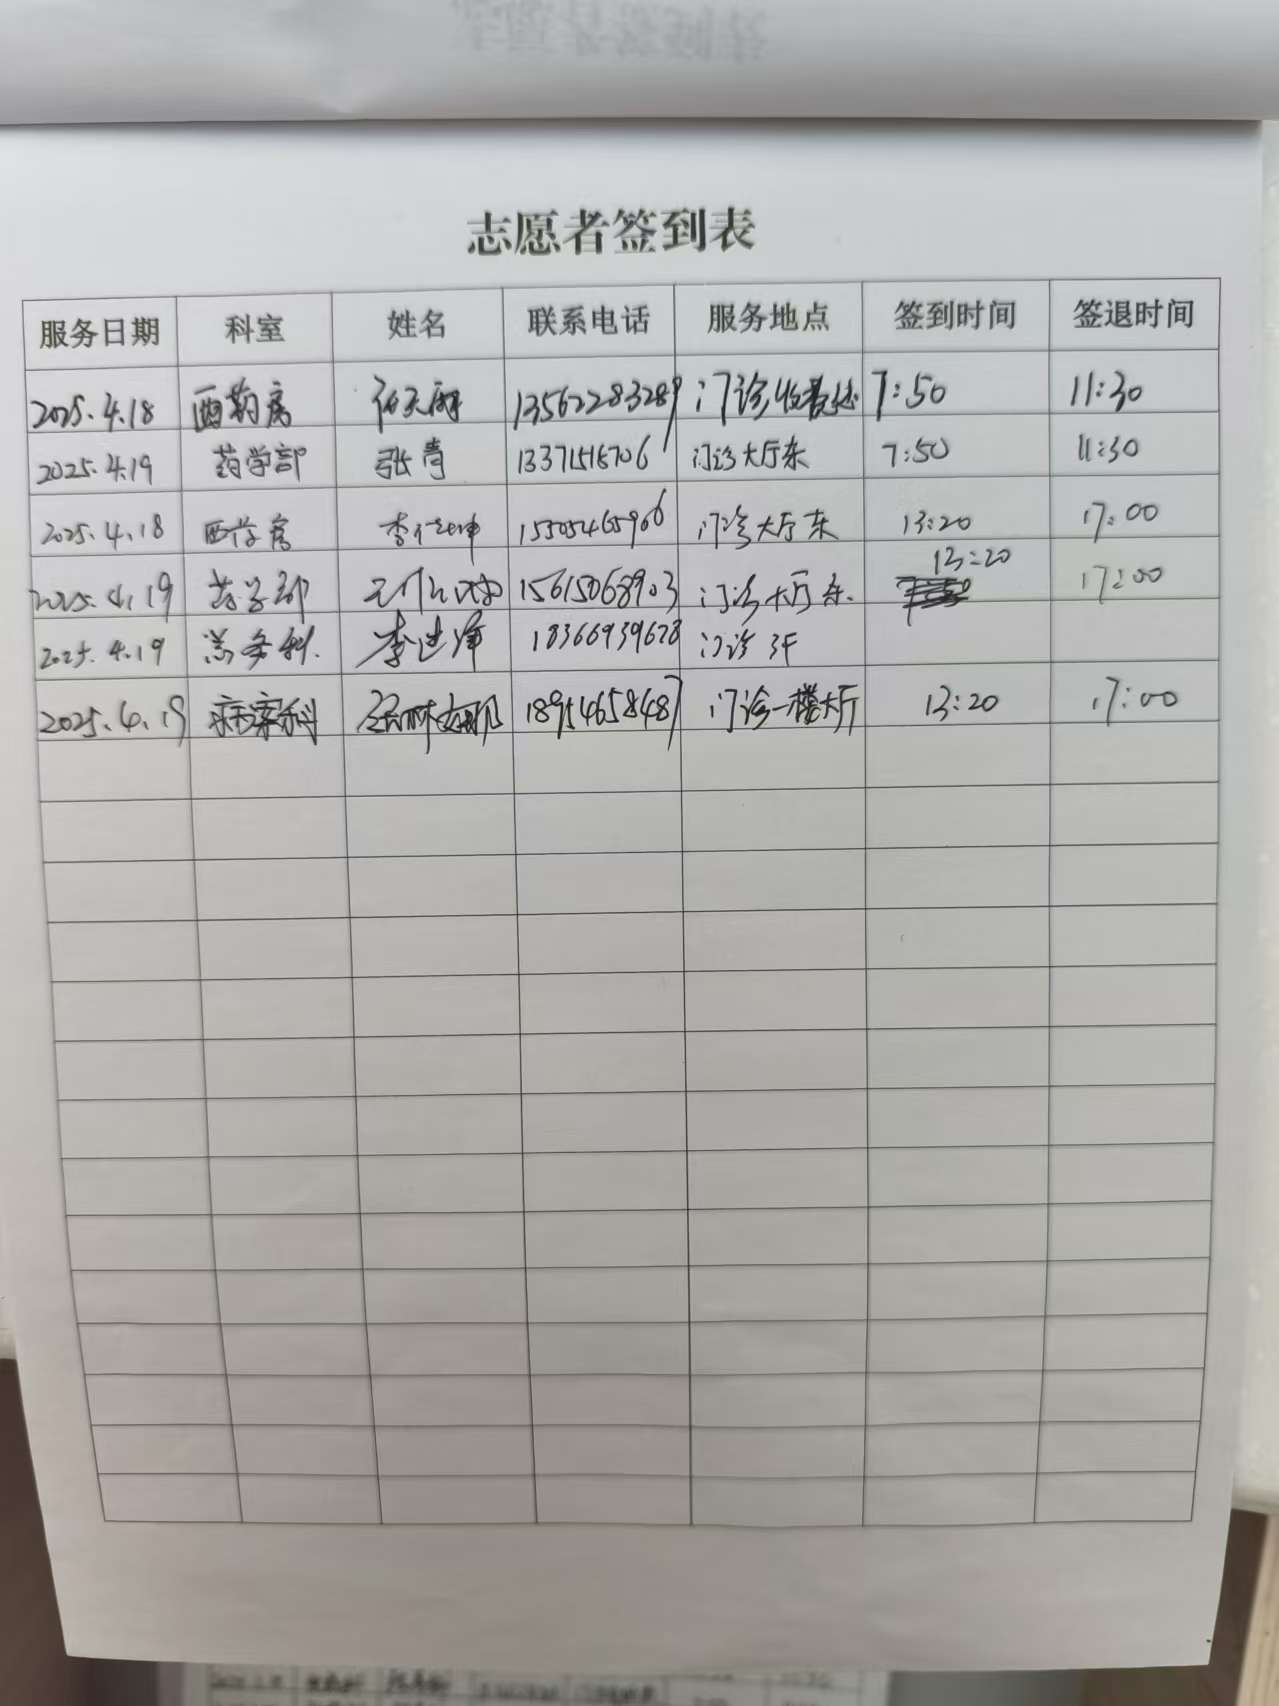 志愿者签到表
服务日期 科室 姓名 联系电话 服务地点 签到时间 签退时间
2025.4.18 西药房 13562283289 门诊收费处 7:50 11:30
2025.4.19 药学部 张青 门诊大厅东 7:50 11:30
2025.4.18 西药房 15505465966 门诊大厅东 13:20 17:00
2025.4.19 药学部 15615068903 门诊大厅东. 13:20 17:00
2025.4.19 李进泽 18366939678 门诊
2025.4.19 病案科 18954658487 门诊一楼大厅 13:20 17:00